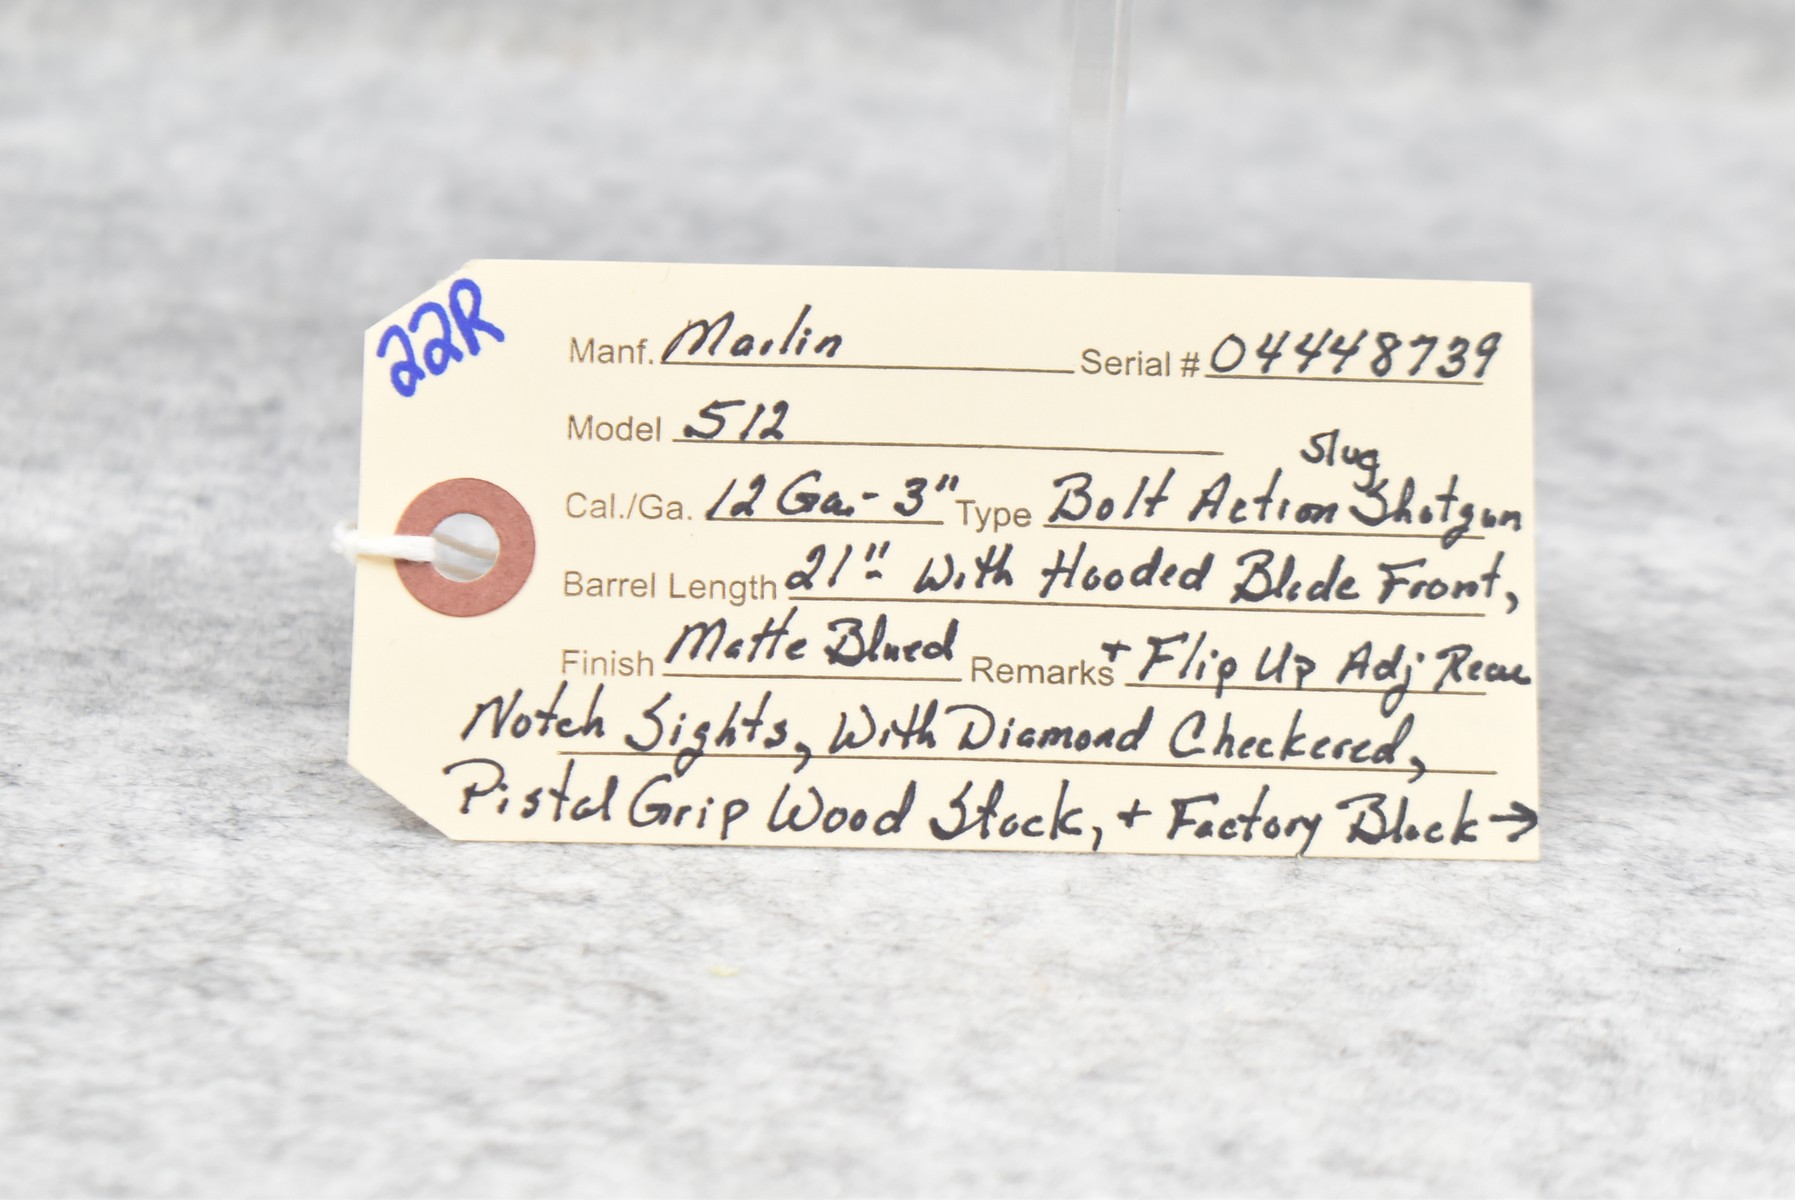 22R
Manf. Marlin Serial # 04448739
Model 512
Slug
Cal./Ga. 12 Ga.- 3" Type Bolt Action Shotgun
Barrel Length 21" With Hooded Blade Front,
Finish Matte Blued Remarks + Flip Up Adj Rear
Notch Sights, With Diamond Checkered,
Pistol Grip Wood Stock, + Factory Black →